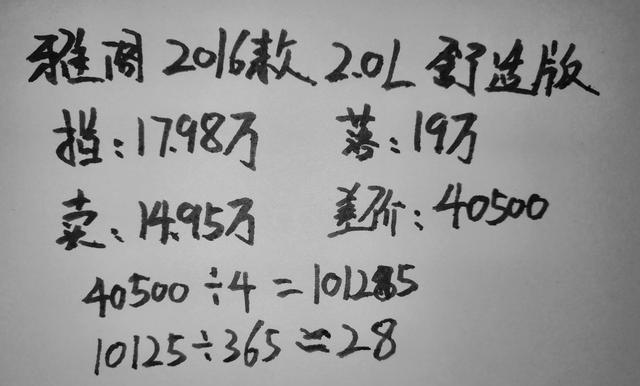 雅阁 2016款 2.0L 舒适版
指: 17.98万 落: 19万
卖: 14.95万 差价: 40500
40500÷4=10125
10125÷365=28